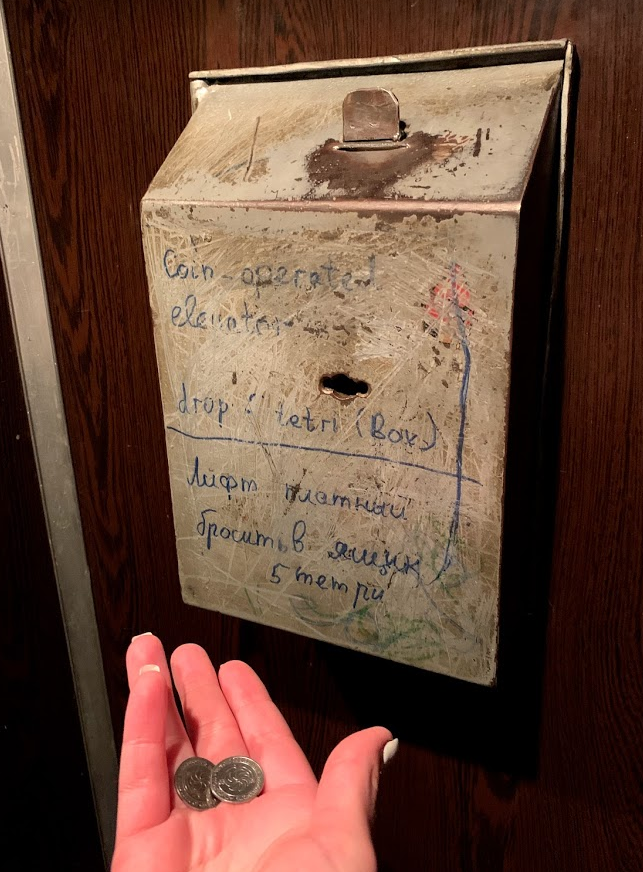 Coin-operated
elevator
drop tetri (Box)
Лифт платный
бросить в ящик
5 тетри